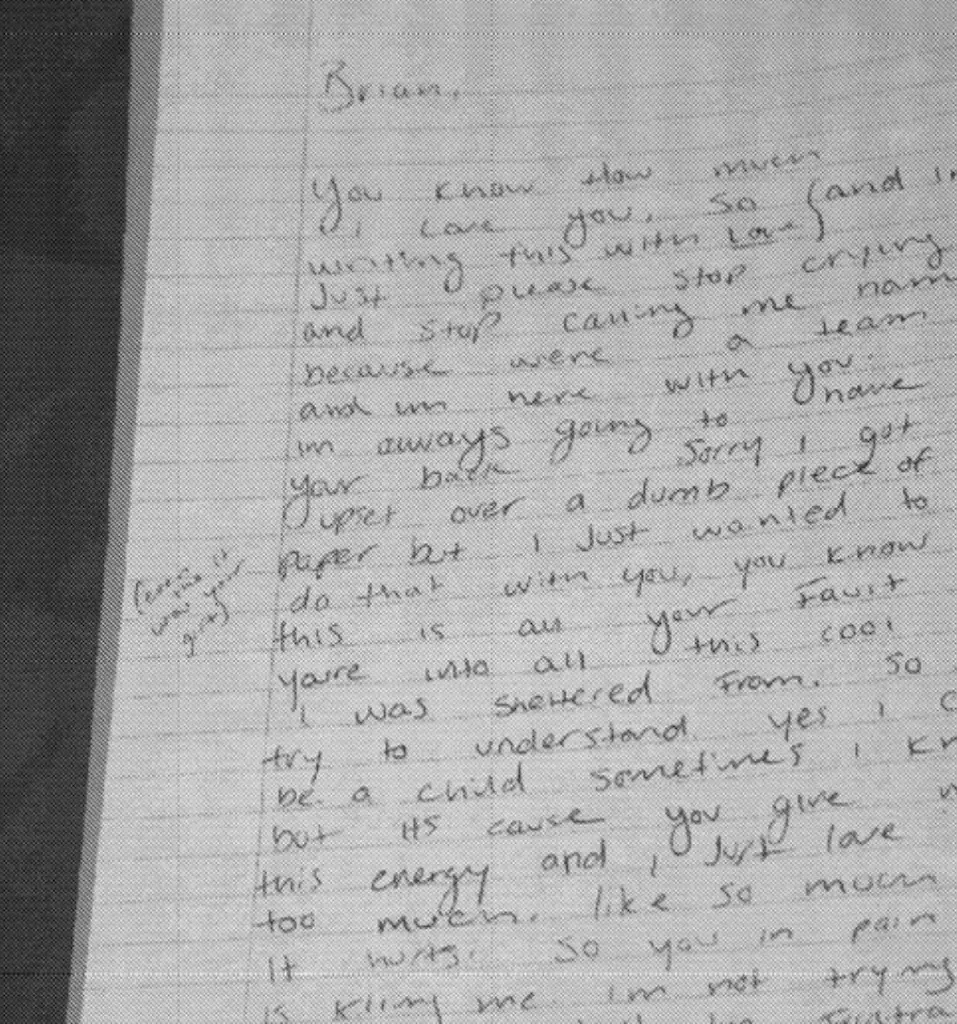 Brian,
You know How much
I Love you, so (and i
writing this with Love)
Just please stop crying
and stop calling me nam
because were a team
and im here with you.
im always going to have
your back Sorry I got
upset over a dumb piece of
paper but I Just wanted to
do that with you, you know
this is all your Fault
you're into all this cool
I was sheltered From. So
try to understand yes i c
be a child sometimes I kn
but its cause you give
this energy and I Just love
too much. like so much
It hurts. So you in pain
is killing me. im not trying